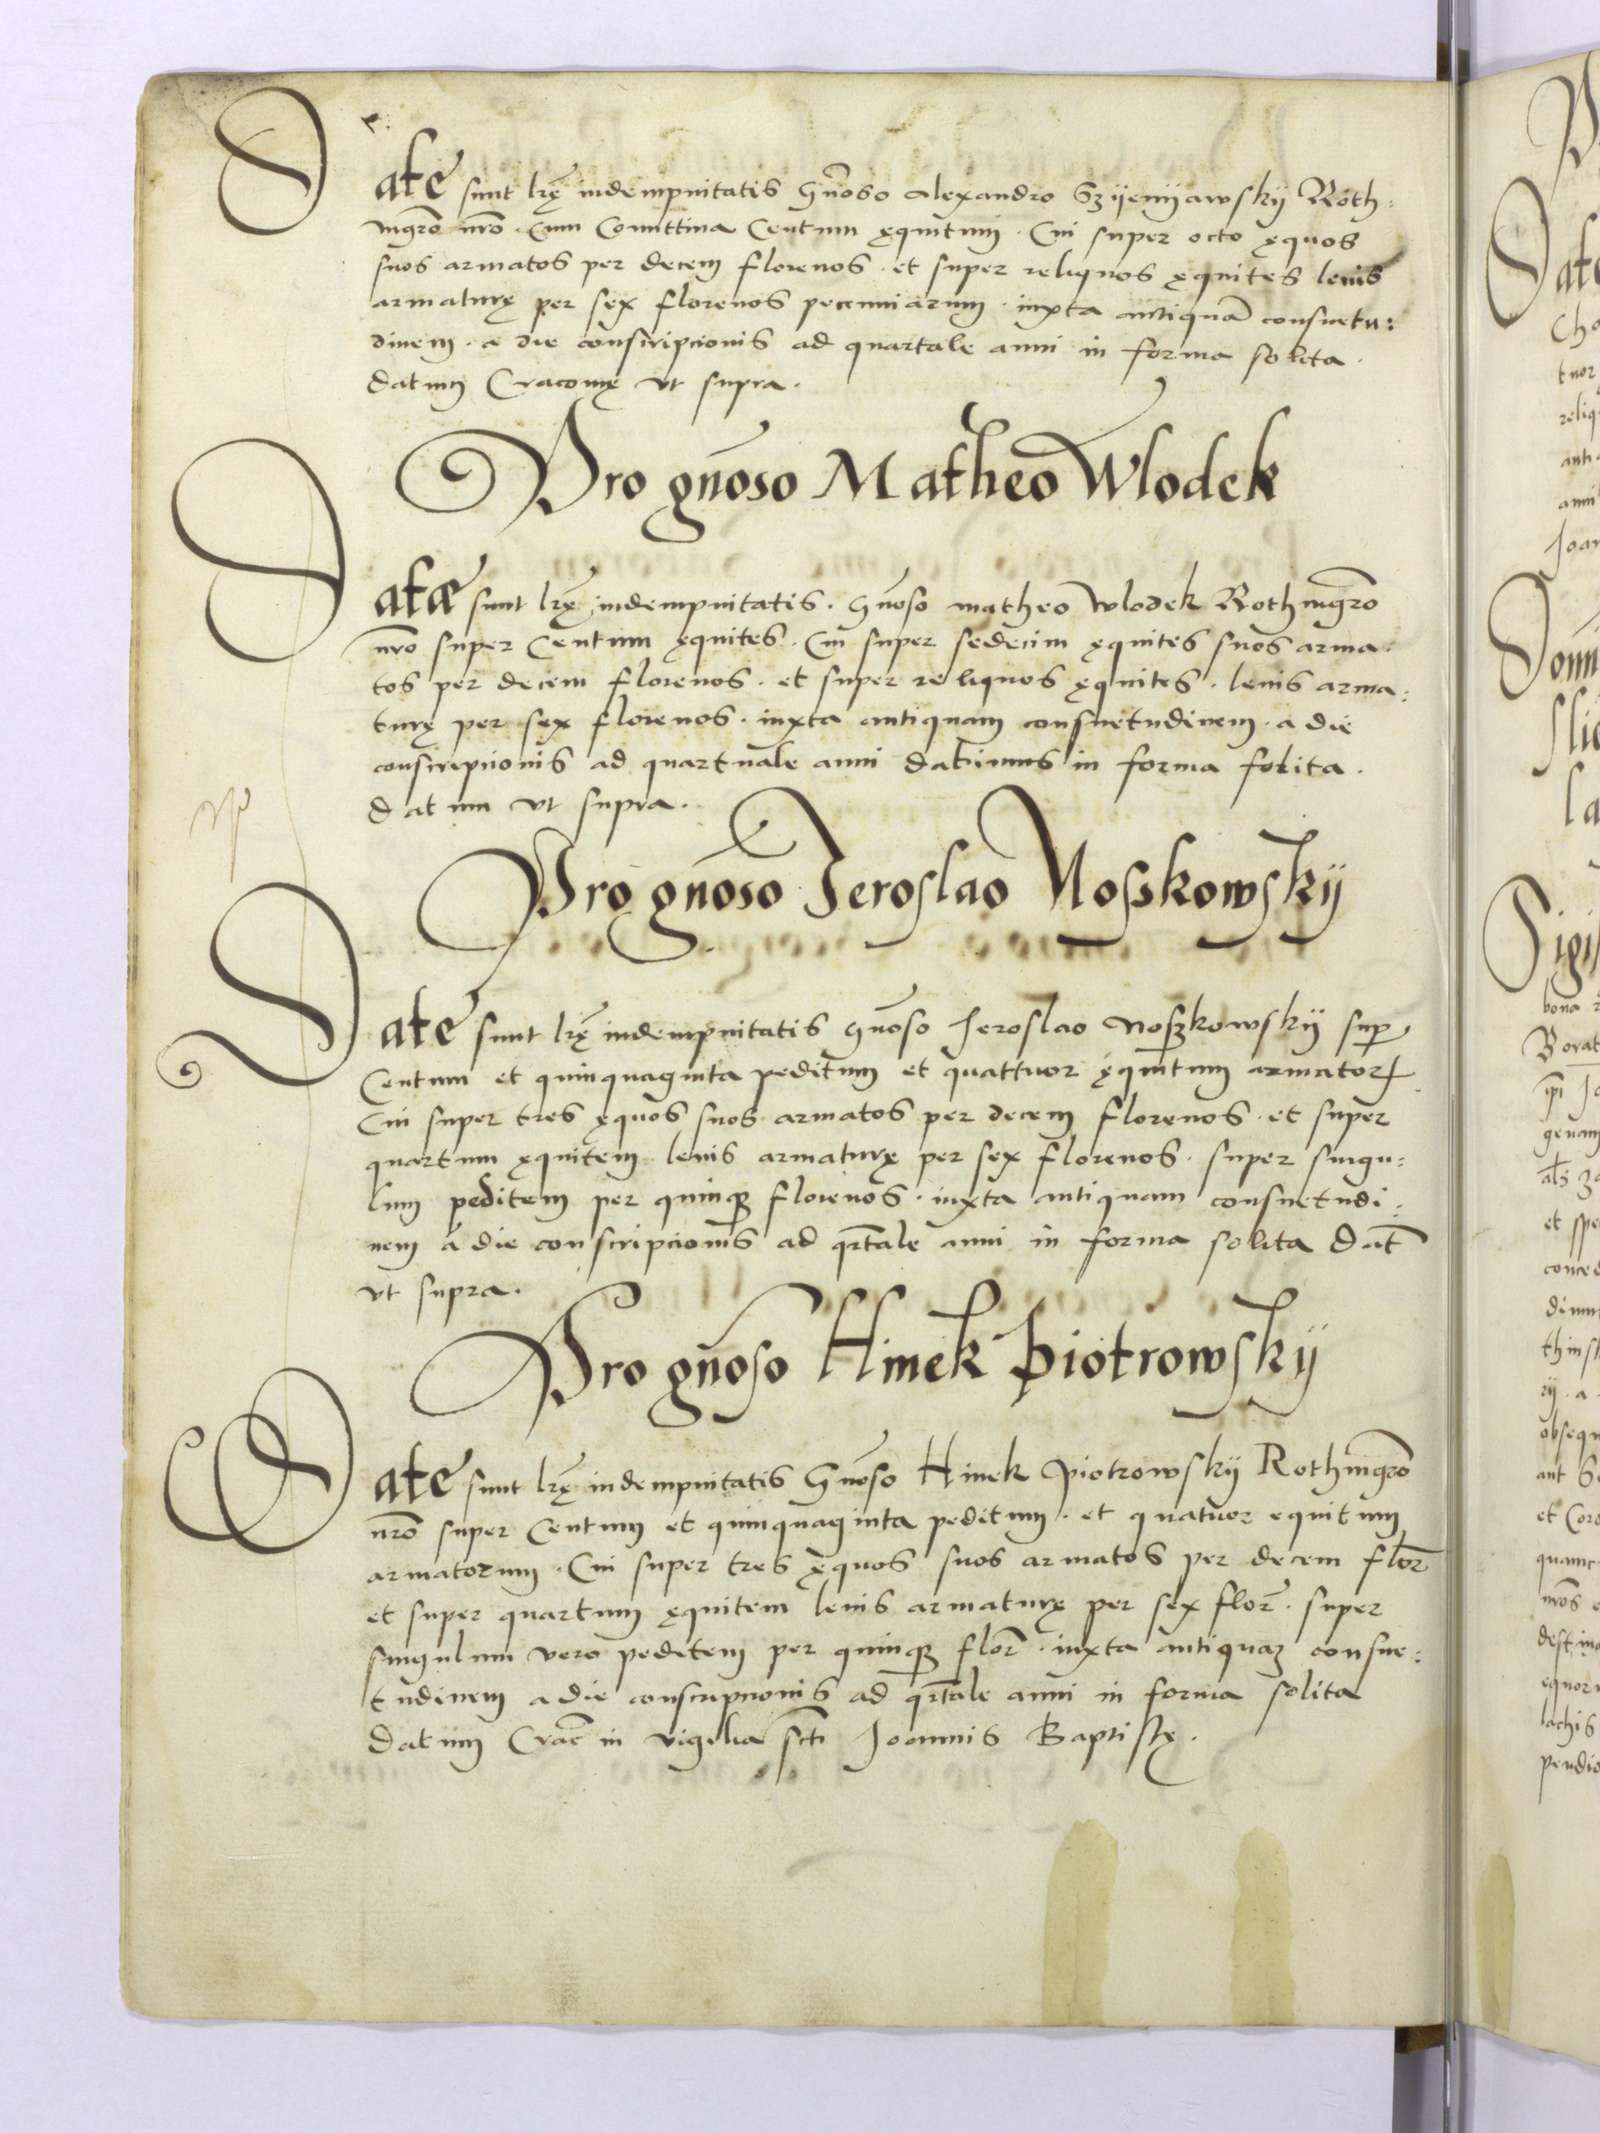 Date sunt lrę indempnitatis Gnoso Alexandro Szyenyawsky Roth:
mgro nro. Cum Comittina Centum ęquitum. Cui super octo ęquos
suos armatos per decem florenos. et super reliquos ęquites lenis
armaturę per sex florenos pecuniarum. iuxta antiquā consuetu:
dinem. a die conscripcionis ad quartale anni in forma solita.
datum Cracovię vt supra.
Pro gnoso Matheo Wlodek
Datæ sunt lrę indempnitatis. Gnoso matheo Wlodek Rothmgro
nro super Centum ęquites. Cui super sedecim ęquites suos arma.
tos per decem florenos. et super reliquos ęquites. lenis arma:
turę per sex florenos. iuxta antiquam consuetudinem. a die
conscripcionis ad quartuale anni dabimus in forma solita.
datum vt supra.
Pro gnoso Jeroslao Noskowsky
Date sunt lrę indempnitatis Gnoso Jeroslao Noszkowsky sup
Centum et quinquaginta peditum et quattuor ęquitum armator
Cui super tres ęquos suos armatos per decem florenos. et super
quartum ęquitem lenis armaturę per sex florenos. super singu:
lum peditem per quinq florenos. iuxta antiquam consuetudi.
nem a die conscripcionis ad qrtale anni in forma solita dat
vt supra.
Pro gnoso Hinek Piotrowsky
Date sunt lrę indempnitatis Gnoso Hinek Piotrowsky Rothmgro
nro super Centum et quinquaginta peditum. et quatuor equitum
armatorum. Cui super tres ęquos suos armatos per decem flor
et super quartum ęquitem lenis armaturę per sex flor. super
singulum vero peditem per quinq flor. iuxta antiquaz consue:
tudinem a die conscripcionis ad qrtale anni in forma solita
datum Crac in vigilia scti Joannis Baptistę.